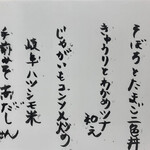 そぼろとたまご二色丼
きゅうりとわかめツナ和え
じゃがいもコンソメ炒め
岐阜ハツシモ米
手前みそ あだし